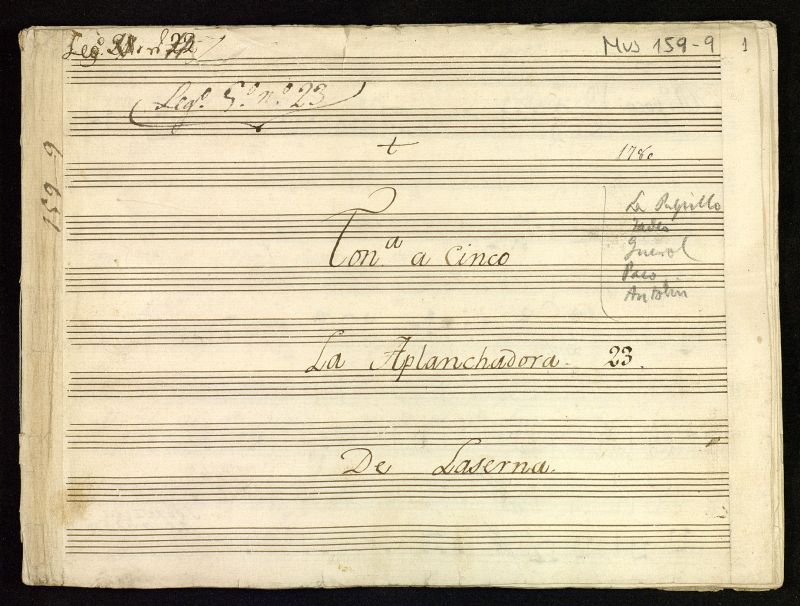 Leg.º 22
Mus 159-9
1
Leg.º 5.º n.º 23
1780
159-9
La Pulpillo
Tadeo
Querol
Paco
Antolin
Ton.ª a Cinco
La Aplanchadora. 23.
De Laserna.